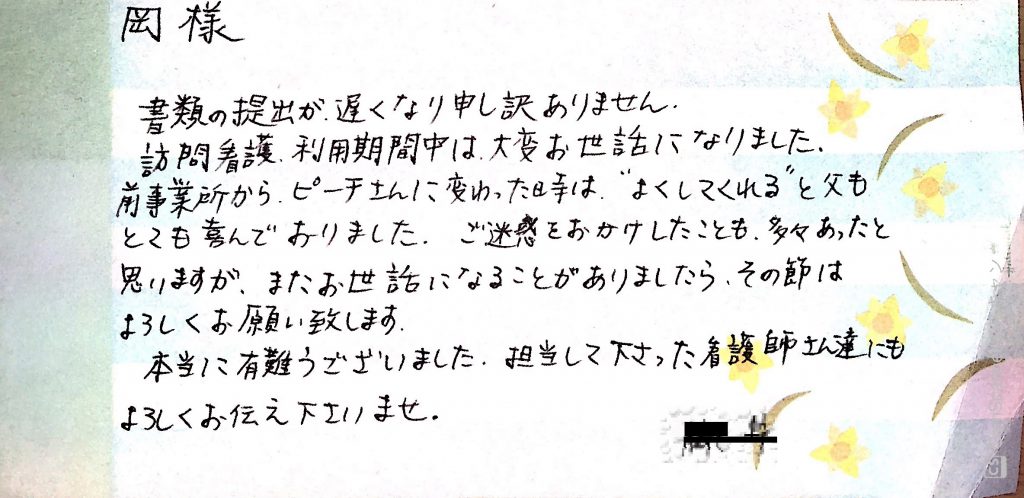 岡 様
書類の提出が、遅くなり申し訳ありません.
訪問看護、利用期間中は、大変お世話になりました.
前事業所から、ピーチさんに変わった時は、"よくしてくれる"と父も
とても喜んでおりました. ご迷惑をおかけしたことも、多々あったと
思いますが、またお世話になることがありましたら、その節は
よろしくお願い致します.
本当に有難うございました. 担当して下さった看護師さん達にも
よろしくお伝え下さいませ。